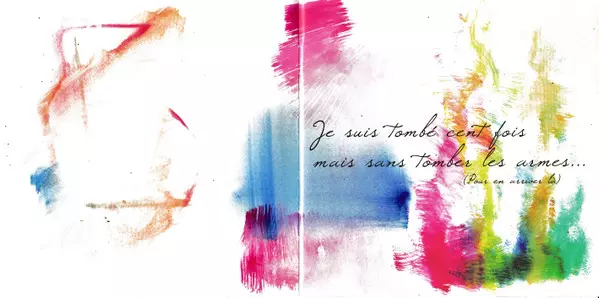 Je suis tombé cent fois
mais sans tomber les armes...
(Pour en arriver là)